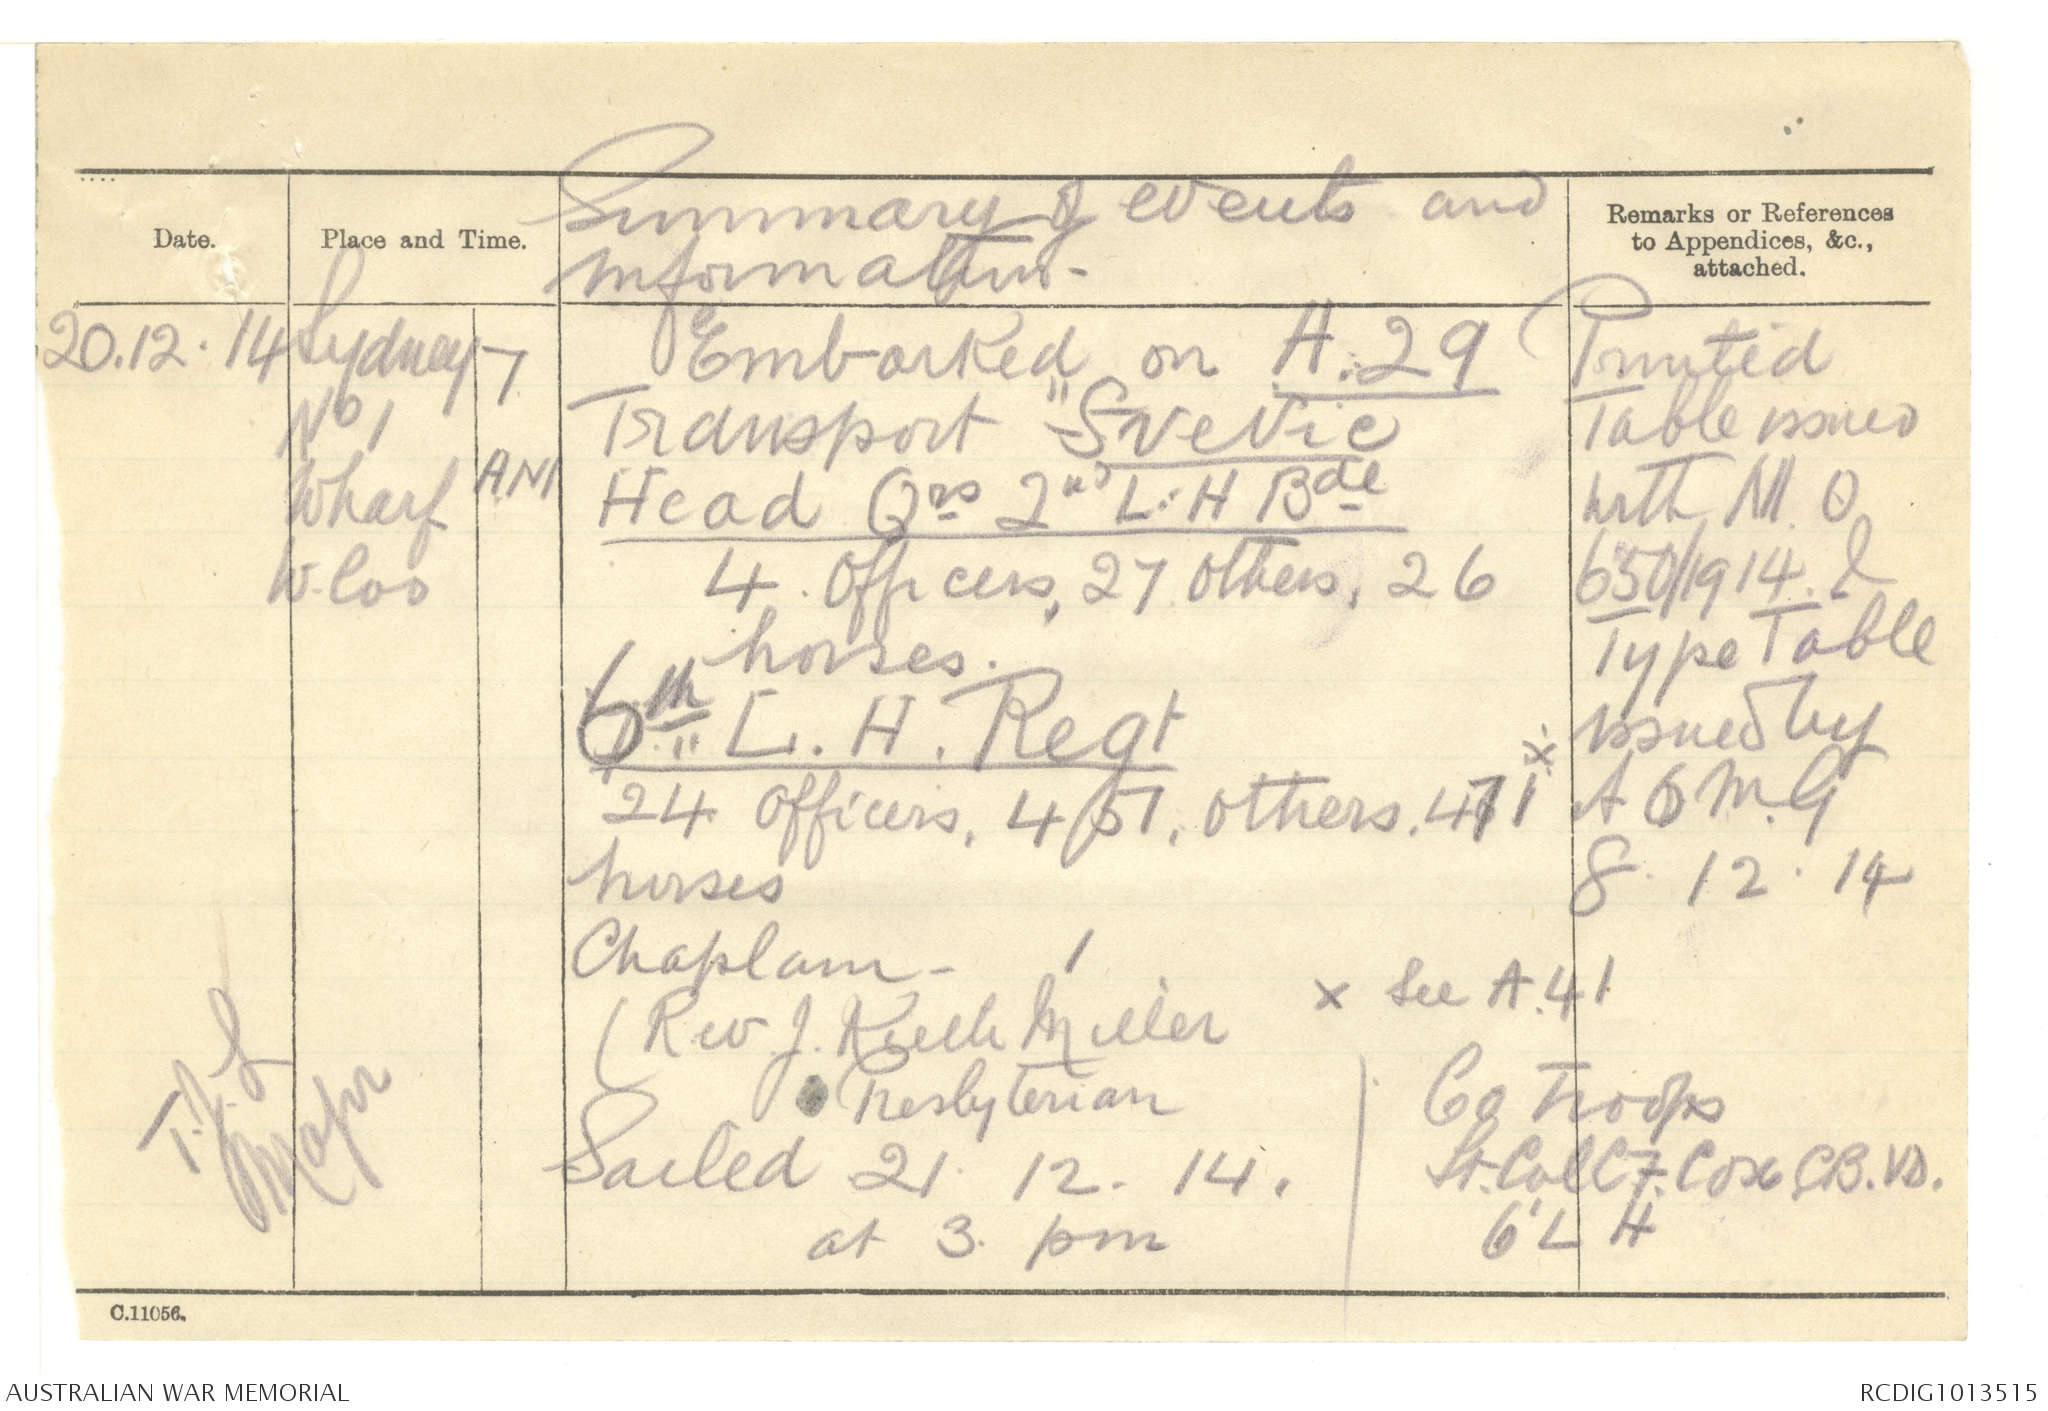 Date.
Place and Time.
Summary of events and
Information -
Remarks or References
to Appendices, &c.,
attached.
20.12.14
Sydney
No 1
Wharf
W. loo
7
AM
Embarked on A.29
Transport "Suevic
Head Qrs 2nd L.H Bde
4. Officers, 27 others, 26
horses.
6th L. H. Regt
24 Officers, 451, others, 471 x
horses
Chaplain - 1
(Rev J. Keith Miller
Presbyterian
Sailed 21. 12. 14.
at 3. pm
Printed
Table issued
with M. O
650/1914. &
Type Table
issued by
A Q M. G
8. 12. 14
x See A.41
Co Troops
Lt. Col C F. Cox C.B. VD.
6 L H
Major
C.11056.
AUSTRALIAN WAR MEMORIAL
RCDIG1013515